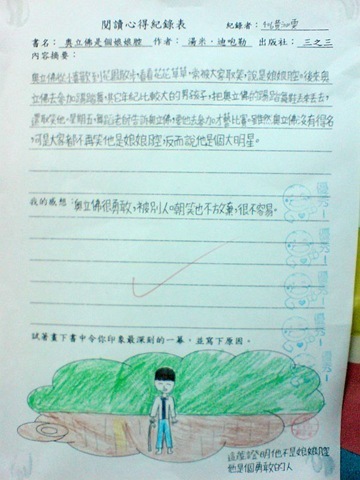 閱讀心得紀錄表
紀錄者：
書名：奧立佛是個娘娘腔 作者：湯米．迪咆勒 出版社：三之三
內容摘要：
奧立佛從小喜歡到花園散步，看看花花草草，常被大家取笑，說是娘娘腔。後來奧
立佛去參加踢踏舞，其它年紀比較大的男孩子，把奧立佛的踢踏舞鞋丟來丟去，
還取笑他。星期五，舞蹈老師告訴奧立佛，要他去參加才藝比賽，雖然奧立佛沒有得名，
可是大家都不再笑他是娘娘腔，反而說他是個大明星。
我的感想：奧立佛很勇敢，被別人嘲笑也不放棄，很不容易。
試著畫下書中令你印象最深刻的一幕，並寫下原因。
這能證明他不是娘娘腔
他是個勇敢的人